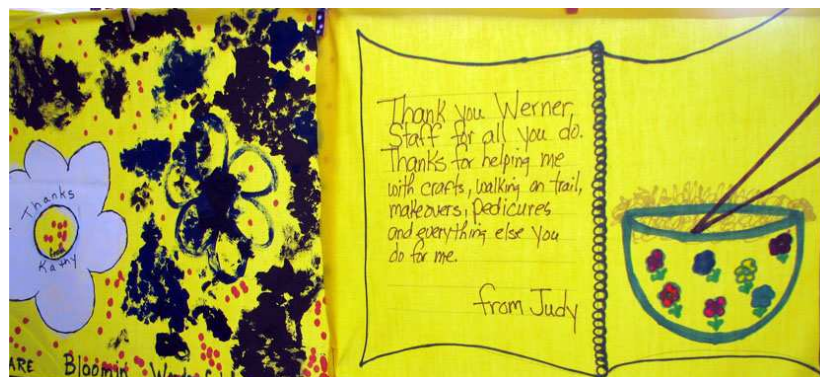 Thanks
Kathy
ARE Bloomin
Thank you Werner
Staff for all you do.
Thanks for helping me
with crafts, walking on trail,
makeovers, pedicures
and everything else you
do for me.
from Judy